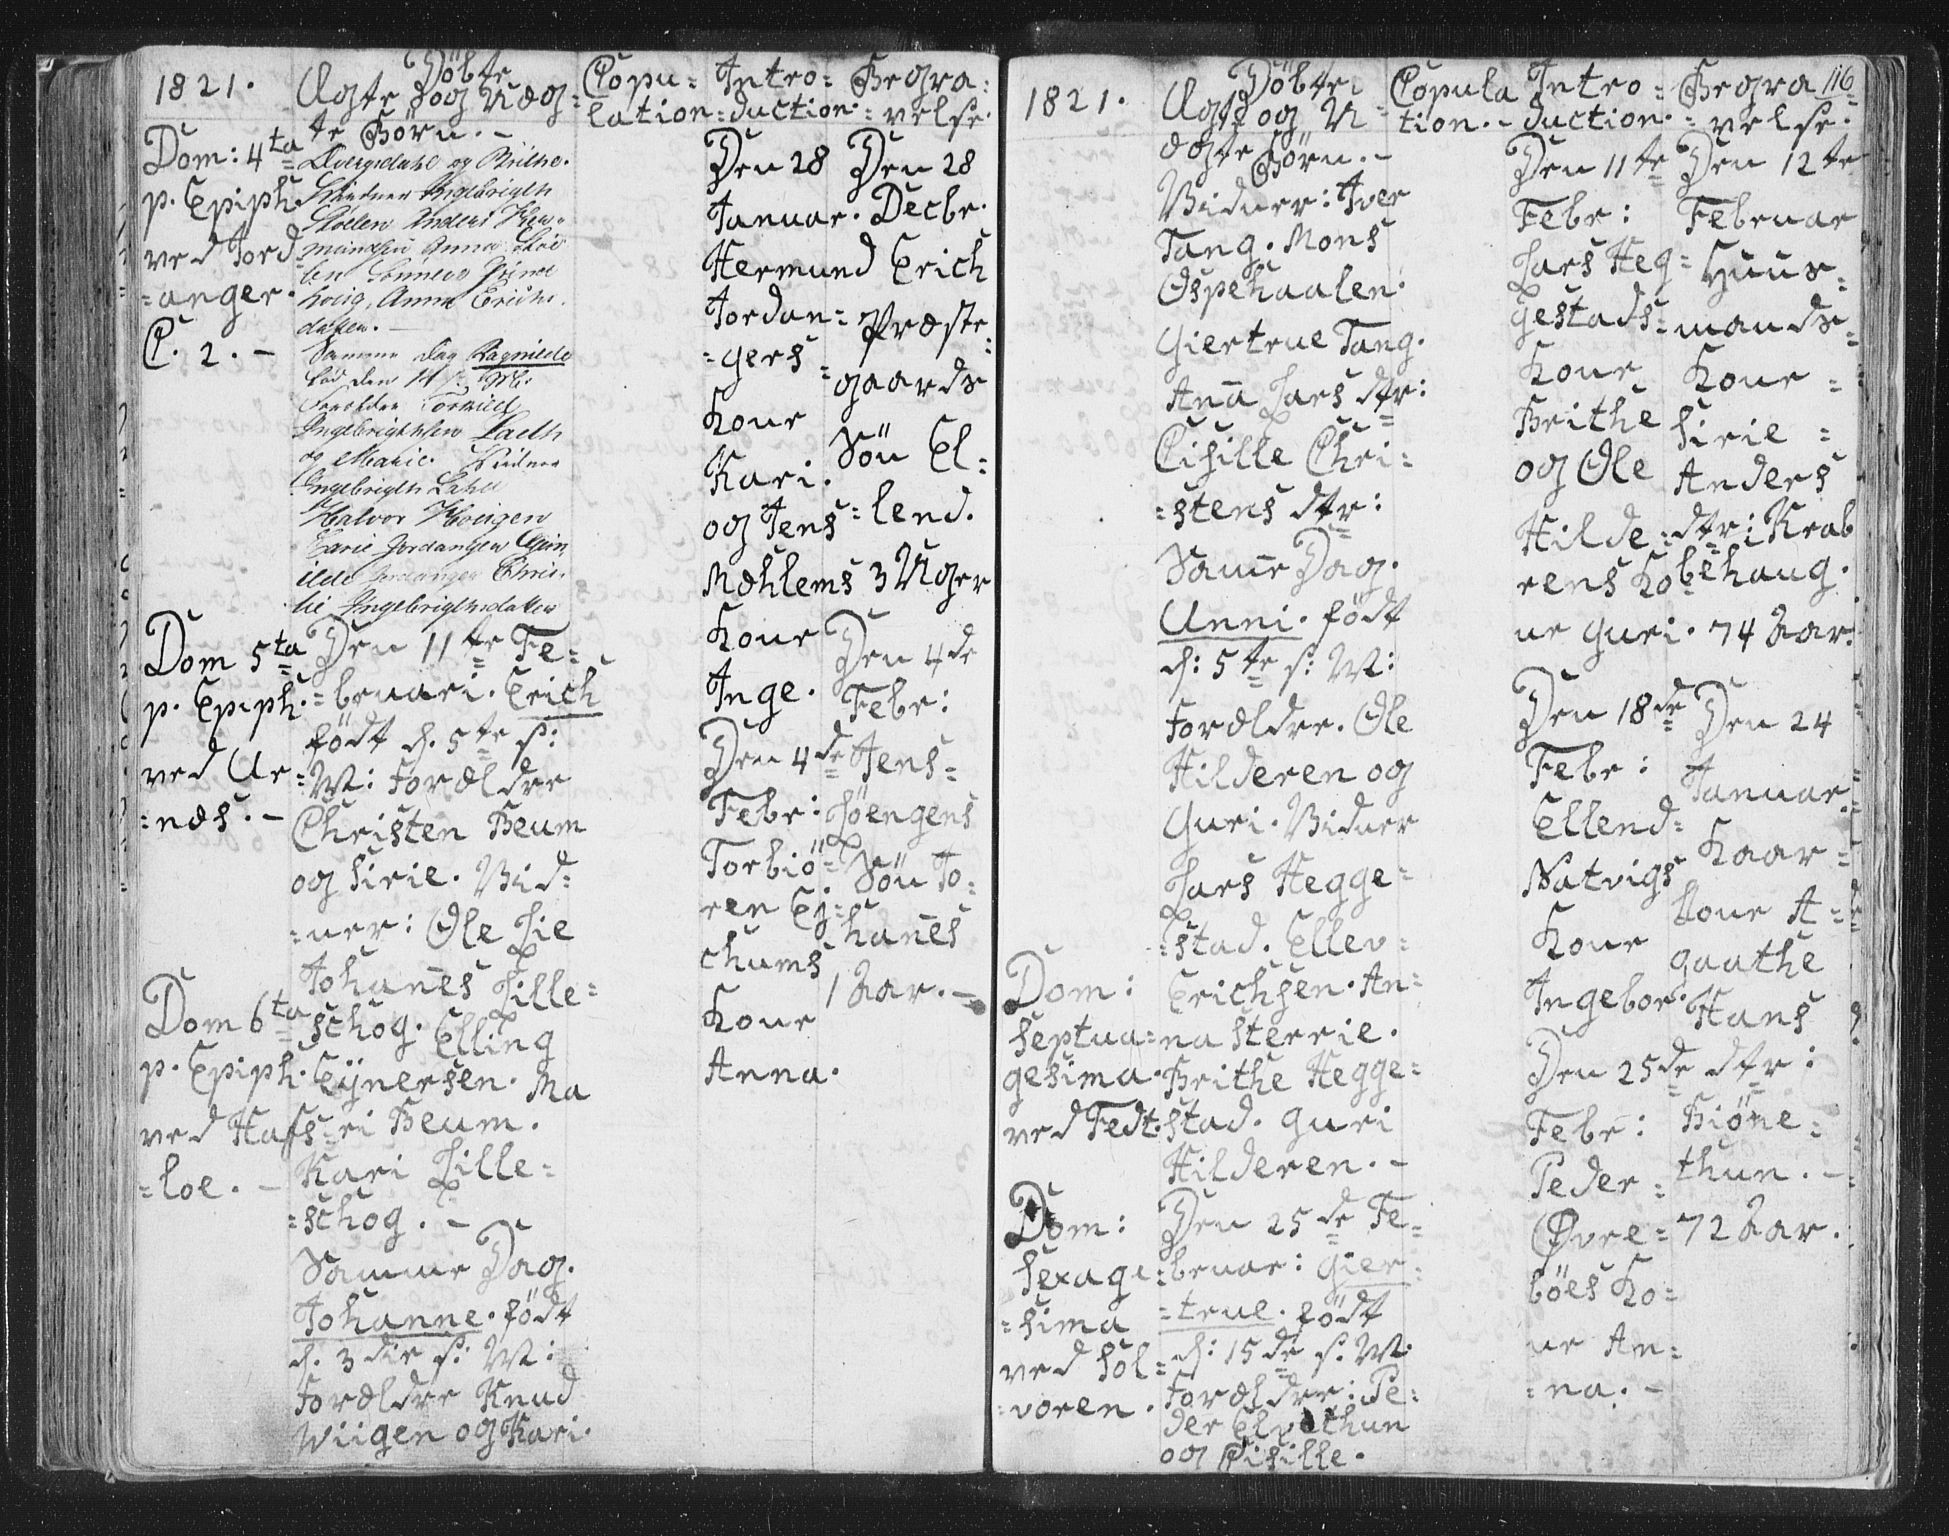 1821.
Döbte
Ægte og Uæg=
te Börn. -
Copu=
lation=
Intro=
duction.
Begra=
velse.
Dom: 4ta
p. Epiph.
ved Jord=
=anger.
C. 2. -
og Brithe.
Ingebrigth
Anders
Anna
Anna Erichs
datter. -
Samme Dag Ragnilde
Ingebrigthsen
og Marie.
Ingebrigth
Halvor Hougen
Carie Jordangen
Jordanger Chris
Ingebrigthsdatter
Dom 5ta
p. Epiph.
ved Ur=
=næs. -
Den 11te Fe=
=bruari. Erich
födt d. 5te s:
M: Forældre
Christen Beum
og Sirie. Vid=
=ner: Ole Lie
Johañes Lille=
schog. Elling
Eÿnersen. Ma
=ri Beum.
Kari Lille=
=schog. -
Dom 6ta
p. Epiph.
ved Hafs=
=loe. -
Samme Dag.
Johanne. födt
d. 3die s: M:
Forældre Knud
Wiigen og Kari.
Den 28
Januar.
Hermund
Jordan=
=gers
Kone
Kari.
og Jens
Mæhlems
Kone
Inge.
Den 4de
Febr:
Torbiö=
ren Eÿ=
chums
Kone
Anna.
Den 28
Decbr.
Erich
Præste=
gaards
Sön El=
=lend.
3 Uger
Den 4de
Febr:
Jens=
Löengens
Sön Jo=
hañes
1 Aar. -
116
1821.
Döbte
Ægte og U=
ægte Börn. -
Copula
tion. -
Intro=
duction.
Begra
=velse.
Vidner: Iver
Tang. Mons
Ospehaalen.
Giertrue Tang.
Aña Lars dtr:
Cisille Chri=
=stens dtr:
Same Dag.
Unni. födt
d: 5te s: M:
Forældre. Ole
Hilderen og
Guri. Vidner
Lars Hegge=
=stad. Ellev=
Erichsen. An=
na Sterrie.
Brithe Hegge=
stad. Guri
Hilderen. -
Dom:
Septua=
gesima.
ved Fedt.
Dom:
Sexage=
=sima
ved Sol=
=voren.
Den 25de Fe=
bruar: Gier=
=true. födt
d: 15de s. M.
Forældre: Pe=
der Elvethun
og Cisille.
Den 11te
Febr:
Lars Heg=
gestads=
Kone
Brithe
og Ole
Hilde=
rens Ko=
ne Guri.
Den 18de
Febr:
Ellend=
Natvigs
Kone
Ingebor.
Den 25de
Febr:
Peder=
Øvre=
böes Ko=
ne An=
=na. -
Den 12te
Februar
Huus=
mands=
Kone =
Sirie =
Anders
dtr: Krab
behaug.
74 Aar.
Den 24
Januar.
Kaar=
Kone A=
gaathe
Hans
dtr:
Biörne=
thun. -
72 Aar.